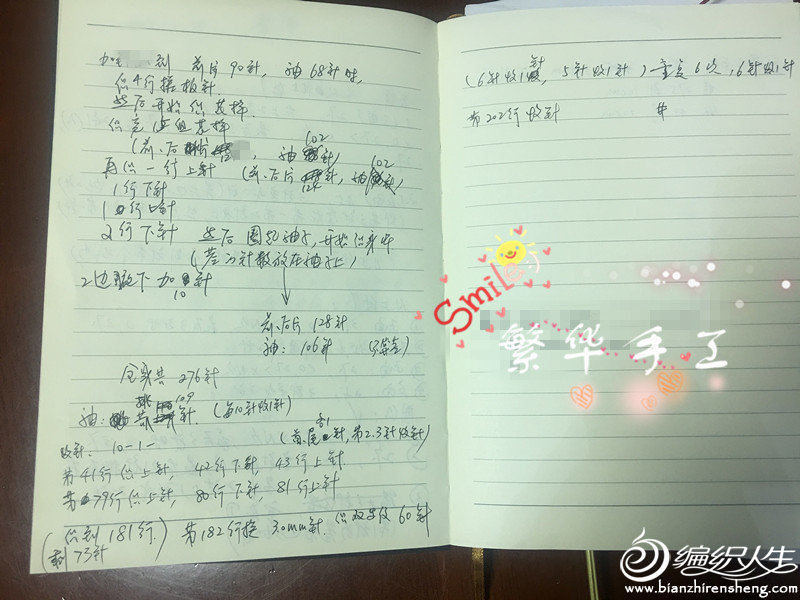 加 到 前片90针, 袖68针时,
织4行搓板针
然后开始织花样
织完 花样
(前.后片 , 袖102针)
再织一行上针 (前.后片 针, 袖102)
1行下针
1行上针
2行下针 然后圈起袖子,开始织身体
(差的针数放在袖子上)
2边腋下加10针
前.后片 128针
袖: 106针
全身共276针
袖: 109针. (每10针收1针)
收针: 10-1-
(首.尾 针, 第2.3针收针)
第41行织上针, 42行下针, 43行上针
第79行织上针, 80行下针, 81行上针
(织到181行) 第182行换3.0mm针 织双罗纹60针
(剩73针)
(6针收1针, 5针收1针) 重复6次, 6针收1针
第202行收针
Smile
繁华手工
编织人生
www.bianzhirensheng.com